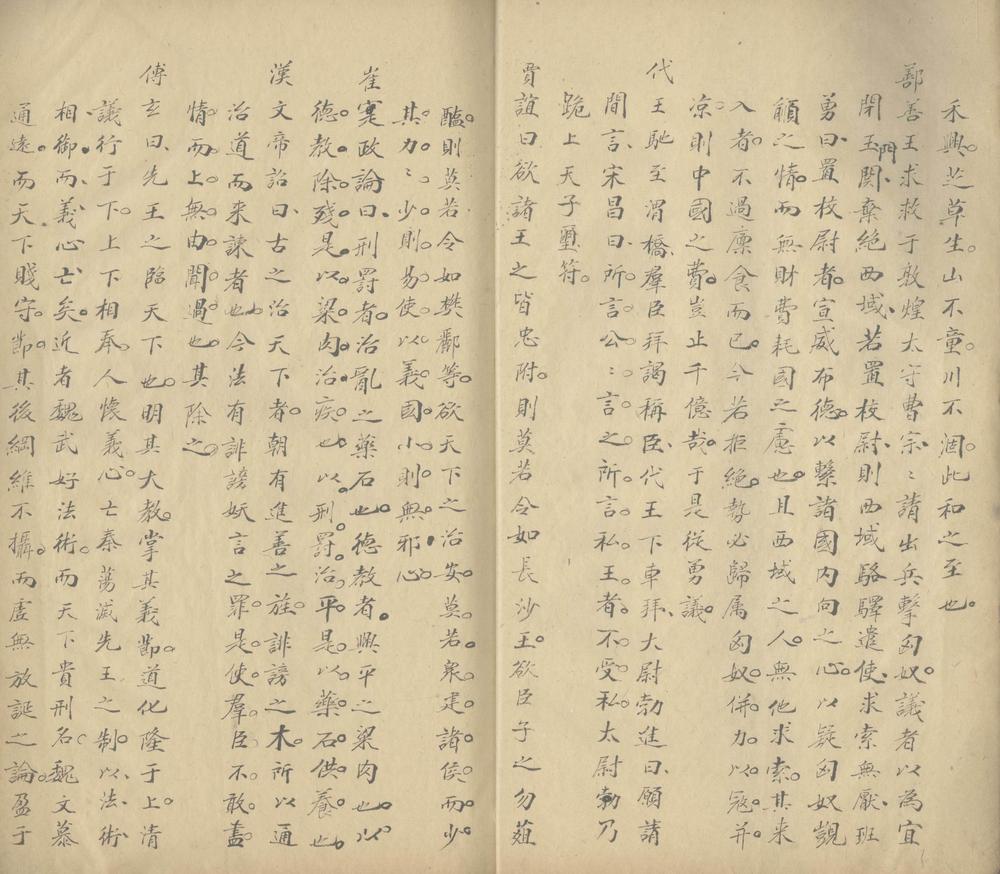 禾興。芝草生。山不童。川不涸。此和之至也。
鄯善王求救于敦煌太守曹宗、〻請出兵擊匈奴。議者以為宜
閉玉門関、棄絶西域、若置校尉、則西域駱驛遣使、求索無厭、班
勇曰、置校尉者。宣威布德。以繫諸國內向之心。以疑匈奴覬
覦之情。而無財費耗國之慮也。且西域之人。無他求索。其来
入者。不過廩食而已。今若拒絶。勢必歸属匈奴。併力。以寇并。
凉。則中國之費。豈止千億哉。于是從勇議。
代王馳至渭橋、羣臣拜謁稱臣、代王下車拜、大尉勃進曰、願請
間言、宋昌曰、所言公。〻言之。所言私。王者不受私。太尉勃乃
跪上天子璽符。
賈誼曰、欲諸王之皆忠附。則莫若令如長沙王。欲臣子之勿菹
醢。則莫若令如樊酈等。欲天下之治安。莫若衆建諸侯。而少
其力。〻少。則易使以義。國小。則無邪心。
崔寔政論曰、刑罸者。治亂之藥石也。德教者。興平之梁肉也。以
德教。除殘。是以梁肉。治疾也。以刑罸。治平。是以藥石。供養也。
漢文帝詔曰、古之治天下者。朝有進善之旌。誹謗之木。所以通
治道而来諫者也。今法有誹謗妖言之罪。是使羣臣不敢盡
情。而上無由聞過也。其除之。
傅玄曰、先王之臨天下也。明其大教。掌其義節。道化隆于上。清
議行于下。上下相奉。人懷義心。亡秦蕩滅先王之制。以法術
相御。而義心亡矣。近者魏武好法術。而天下貴刑名。魏文慕
通遠。而天下賤守節。其後綱維不攝。而虛無放誕之論。盈于